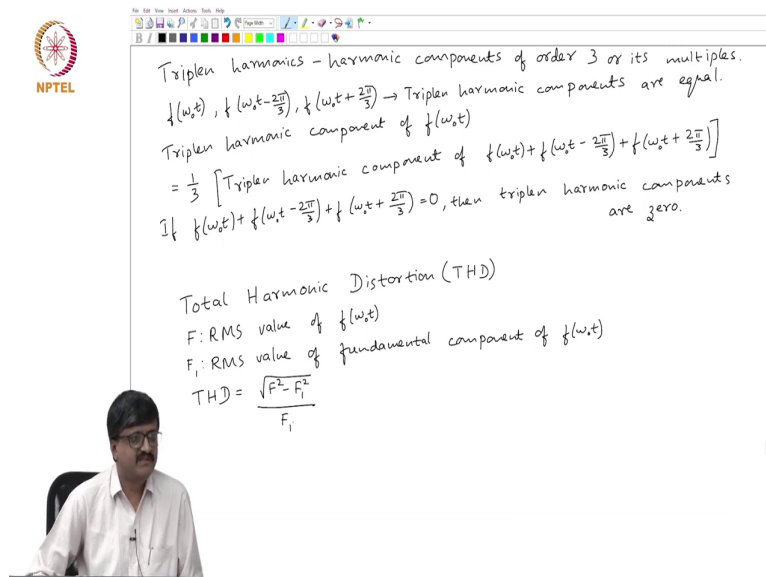 File Edit View Insert Actions Tools Help
Page Width
B I
NPTEL
Triplen harmonics - harmonic components of order 3 or its multiples.
f(ω₀t), f(ω₀t - 2π/3), f(ω₀t + 2π/3) → Triplen harmonic components are equal.
Triplen harmonic component of f(ω₀t)
= 1/3 [Triplen harmonic component of f(ω₀t) + f(ω₀t - 2π/3) + f(ω₀t + 2π/3)]
If f(ω₀t) + f(ω₀t - 2π/3) + f(ω₀t + 2π/3) = 0, then triplen harmonic components
are zero.
Total Harmonic Distortion (THD)
F: RMS value of f(ω₀t)
F₁: RMS value of fundamental component of f(ω₀t)
THD = √(F² - F₁²) / F₁